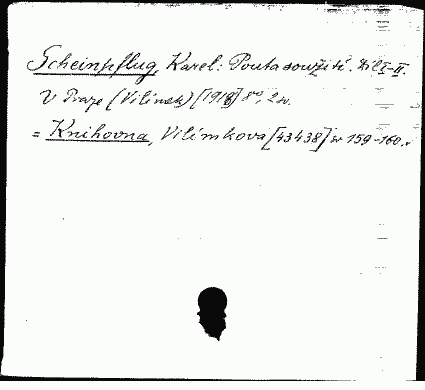 Scheinpflug, Karel: Pouta soužití. Díl I-II.
V Praze (Vilímek) [1918] 8°, 2 sv.
= Knihovna, Vilímkova [43438] sv 159-160.